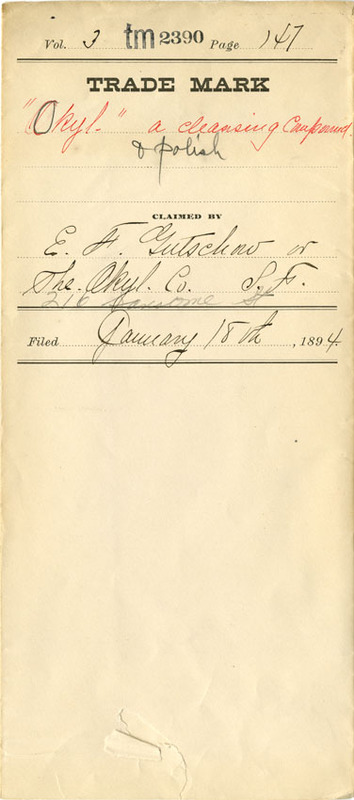 Vol. 3 tm 2390 Page 147
TRADE MARK
"Okyl." a cleansing Compound.
& polish
CLAIMED BY
E. F. Gutschow or
The Okyl. Co. S. F.
216 Sansome St
Filed January 18th, 1894.